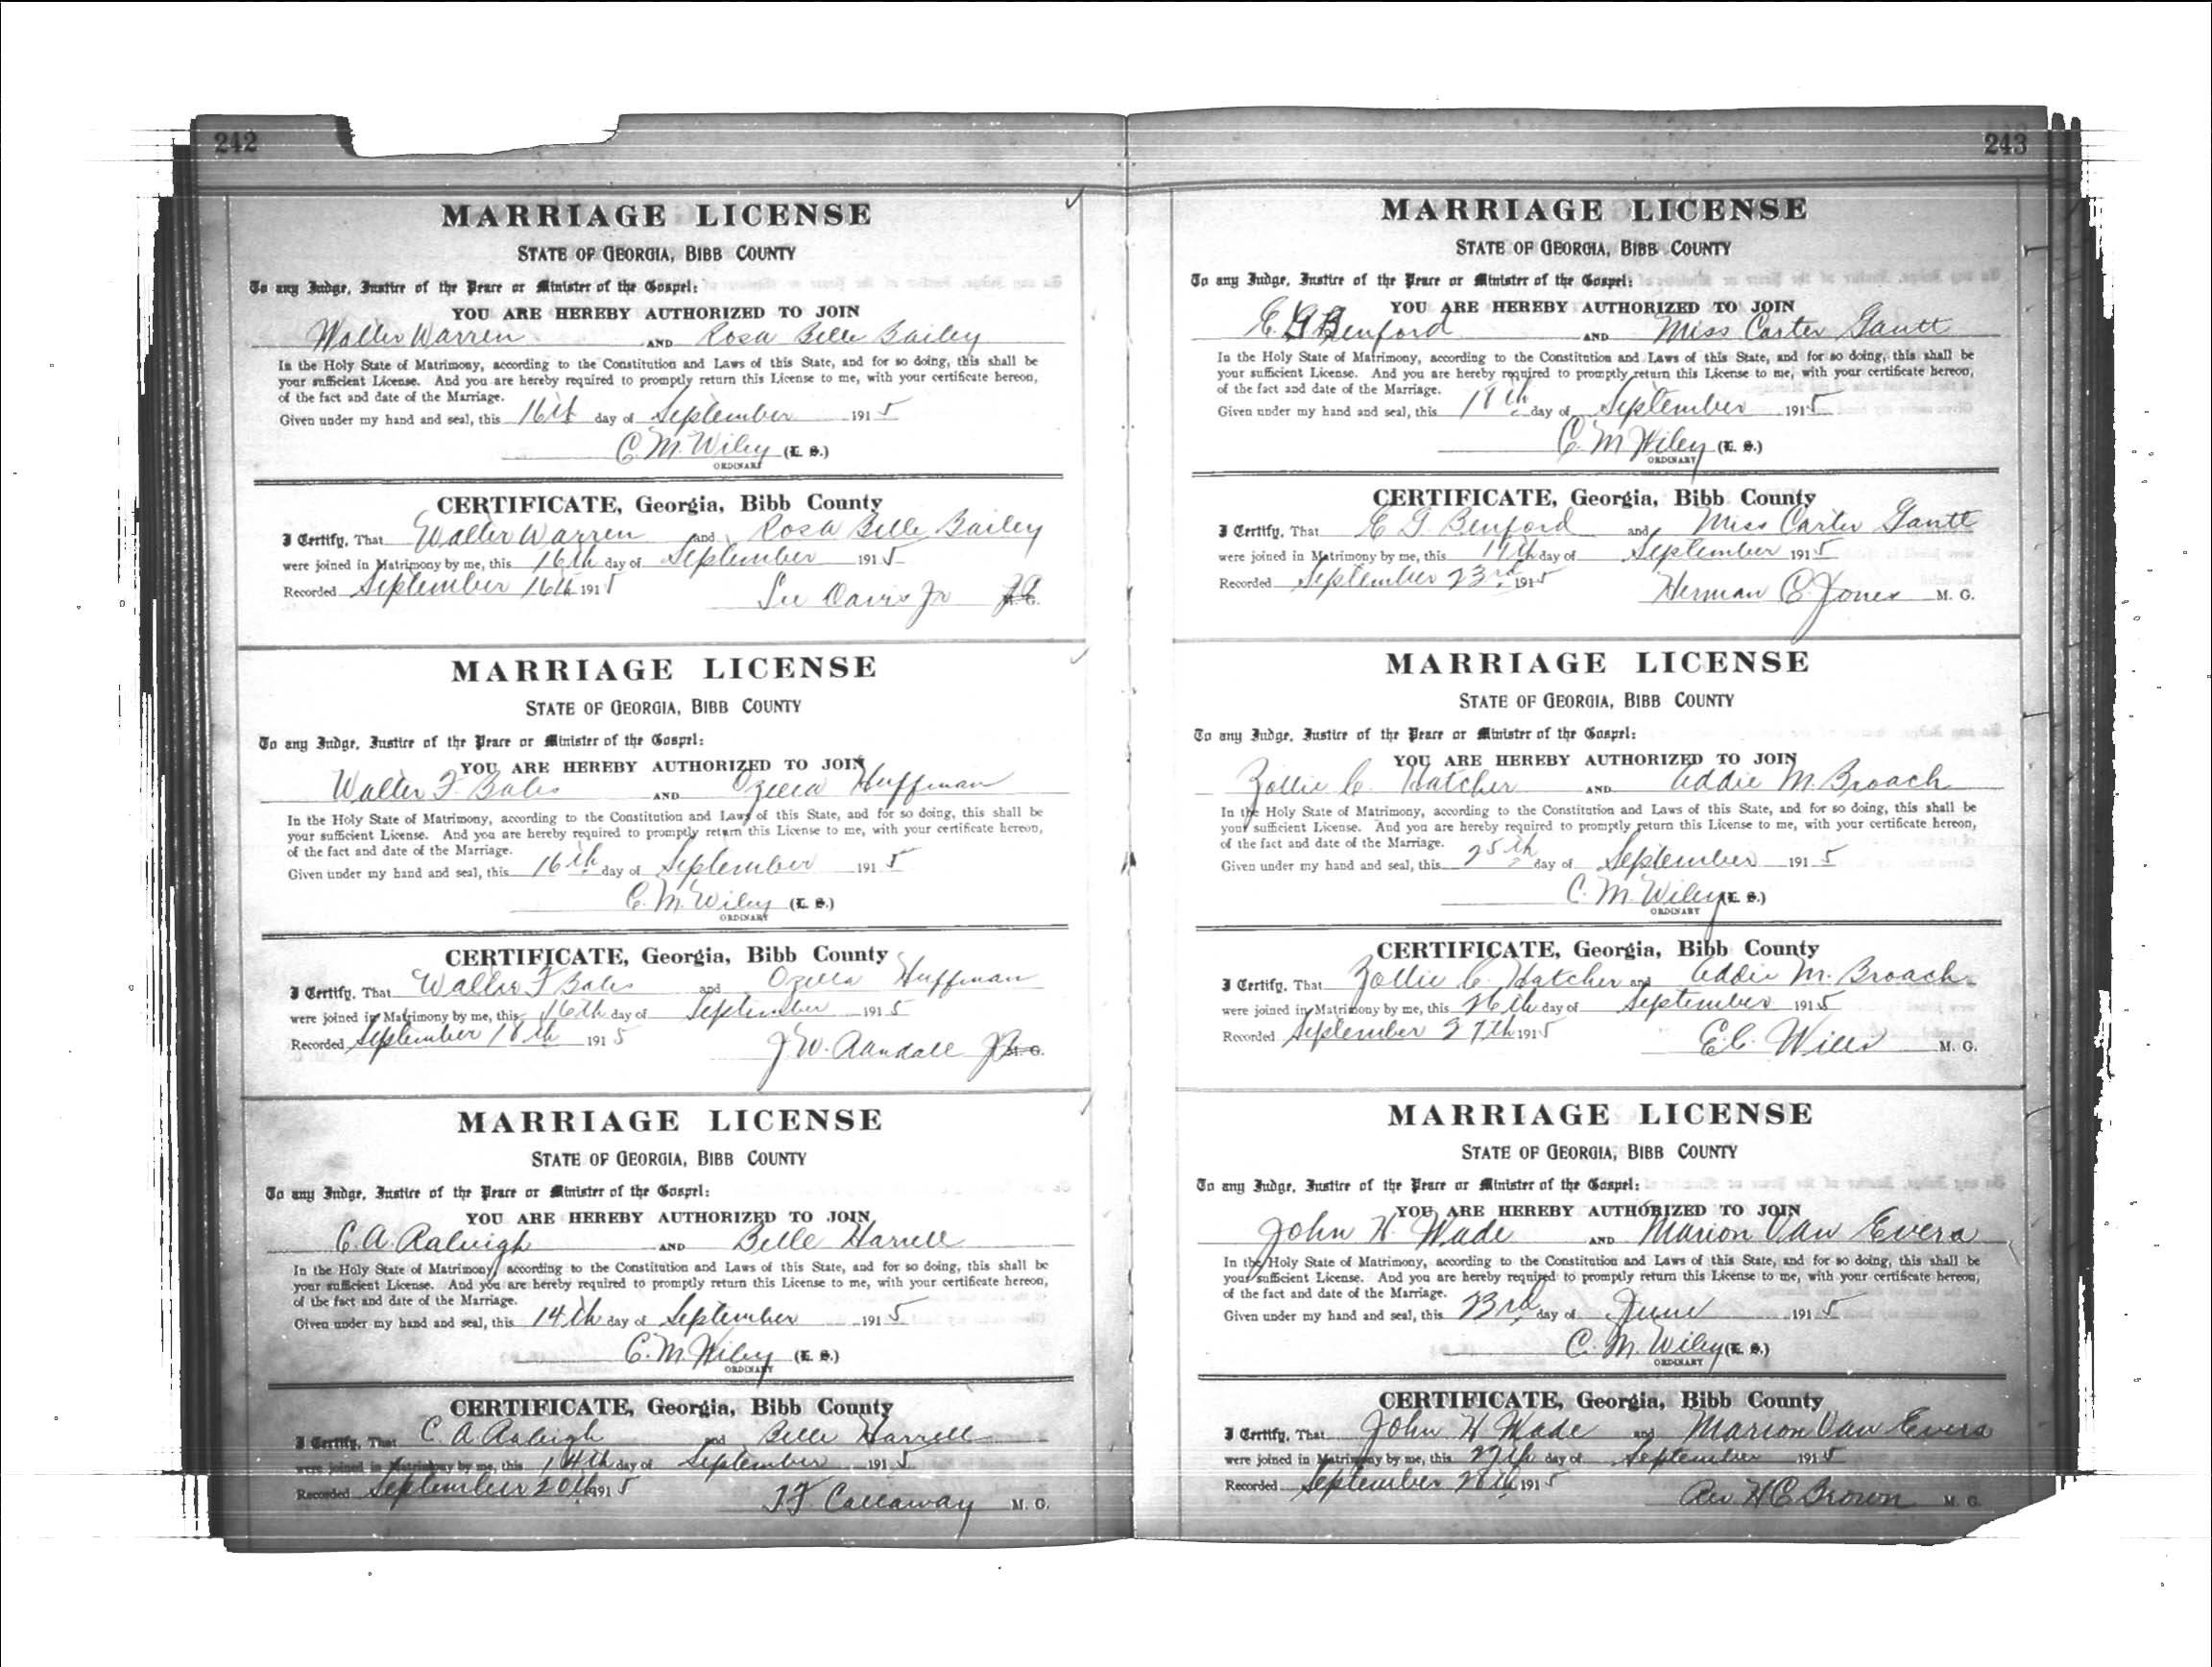 242
MARRIAGE LICENSE
STATE OF GEORGIA, BIBB COUNTY
To any Judge, Justice of the Peace or Minister of the Gospel:
YOU ARE HEREBY AUTHORIZED TO JOIN
Walter Warren AND Rosa Belle Bailey
In the Holy State of Matrimony, according to the Constitution and Laws of this State, and for so doing, this shall be
your sufficient License. And you are hereby required to promptly return this License to me, with your certificate hereon,
of the fact and date of the Marriage.
Given under my hand and seal, this 16th day of September 1915
C. M. Wiley (L. S.)
ORDINARY
CERTIFICATE, Georgia, Bibb County
I Certify, That Walter Warren and Rosa Belle Bailey
were joined in Matrimony by me, this 16th day of September 1915
Recorded September 16th 1915 Davis Jr
MARRIAGE LICENSE
STATE OF GEORGIA, BIBB COUNTY
To any Judge, Justice of the Peace or Minister of the Gospel:
YOU ARE HEREBY AUTHORIZED TO JOIN
Walter F. Bales AND Ozella Huffman
In the Holy State of Matrimony, according to the Constitution and Laws of this State, and for so doing, this shall be
your sufficient License. And you are hereby required to promptly return this License to me, with your certificate hereon,
of the fact and date of the Marriage.
Given under my hand and seal, this 16th day of September 1915
C. M. Wiley (L. S.)
ORDINARY
CERTIFICATE, Georgia, Bibb County
I Certify, That Walter F Bales and Ozella Huffman
were joined in Matrimony by me, this 16th day of September 1915
Recorded September 18th 1915 J. W. Randall
MARRIAGE LICENSE
STATE OF GEORGIA, BIBB COUNTY
To any Judge, Justice of the Peace or Minister of the Gospel:
YOU ARE HEREBY AUTHORIZED TO JOIN
C. A. Raleigh AND Belle Harrell
In the Holy State of Matrimony, according to the Constitution and Laws of this State, and for so doing, this shall be
your sufficient License. And you are hereby required to promptly return this License to me, with your certificate hereon,
of the fact and date of the Marriage.
Given under my hand and seal, this 14th day of September 1915
C. M. Wiley (L. S.)
ORDINARY
CERTIFICATE, Georgia, Bibb County
I Certify, That C. A Raleigh and Belle Harrell
were joined in Matrimony by me, this 14th day of September 1915
Recorded September 20th 1915 T F Callaway M. G.
243
MARRIAGE LICENSE
STATE OF GEORGIA, BIBB COUNTY
To any Judge, Justice of the Peace or Minister of the Gospel:
YOU ARE HEREBY AUTHORIZED TO JOIN
E. G Benford AND Miss Carter Gantt
In the Holy State of Matrimony, according to the Constitution and Laws of this State, and for so doing, this shall be
your sufficient License. And you are hereby required to promptly return this License to me, with your certificate hereon,
of the fact and date of the Marriage.
Given under my hand and seal, this 18th day of September 1915
C. M Wiley (L. S.)
ORDINARY
CERTIFICATE, Georgia, Bibb County
I Certify, That E G Benford and Miss Carter Gantt
were joined in Matrimony by me, this 19th day of September 1915
Recorded September 23rd 1915 Herman C. Jones M. G.
MARRIAGE LICENSE
STATE OF GEORGIA, BIBB COUNTY
To any Judge, Justice of the Peace or Minister of the Gospel:
YOU ARE HEREBY AUTHORIZED TO JOIN
Zollie C. Hatcher AND Addie M. Broach
In the Holy State of Matrimony, according to the Constitution and Laws of this State, and for so doing, this shall be
your sufficient License. And you are hereby required to promptly return this License to me, with your certificate hereon,
of the fact and date of the Marriage.
Given under my hand and seal, this 25th day of September 1915
C. M. Wiley (L. S.)
ORDINARY
CERTIFICATE, Georgia, Bibb County
I Certify, That Zollie C. Hatcher and Addie M. Broach
were joined in Matrimony by me, this 26th day of September 1915
Recorded September 27th 1915 E. C. Wills M. G.
MARRIAGE LICENSE
STATE OF GEORGIA, BIBB COUNTY
To any Judge, Justice of the Peace or Minister of the Gospel:
YOU ARE HEREBY AUTHORIZED TO JOIN
John H. Wade AND Marion Van Evera
In the Holy State of Matrimony, according to the Constitution and Laws of this State, and for so doing, this shall be
your sufficient License. And you are hereby required to promptly return this License to me, with your certificate hereon,
of the fact and date of the Marriage.
Given under my hand and seal, this 23rd day of June 1915
C. M. Wiley (L. S.)
ORDINARY
CERTIFICATE, Georgia, Bibb County
I Certify, That John H Wade and Marion Van Evera
were joined in Matrimony by me, this 27th day of September 1915
Recorded September 28th 1915 Rev H C Brown M. G.